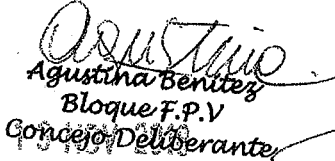 Agustina
Agustina Benitez
Bloque F.P.V
Concejo Deliberante